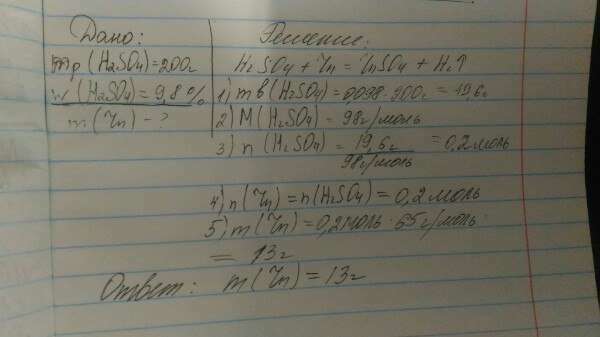 Дано:
mр (H₂SO₄) = 200г
w (H₂SO₄) = 9,8 %
m (Zn) - ?
Решение:
H₂SO₄ + Zn = ZnSO₄ + H₂↑
1) mв (H₂SO₄) = 0,098 · 200г = 19,6г
2) M (H₂SO₄) = 98г/моль
3) n (H₂SO₄) = 19,6г / 98г/моль = 0,2 моль
4) n (Zn) = n (H₂SO₄) = 0,2 моль
5) m (Zn) = 0,2 моль · 65 г/моль
= 13г
Ответ: m (Zn) = 13г